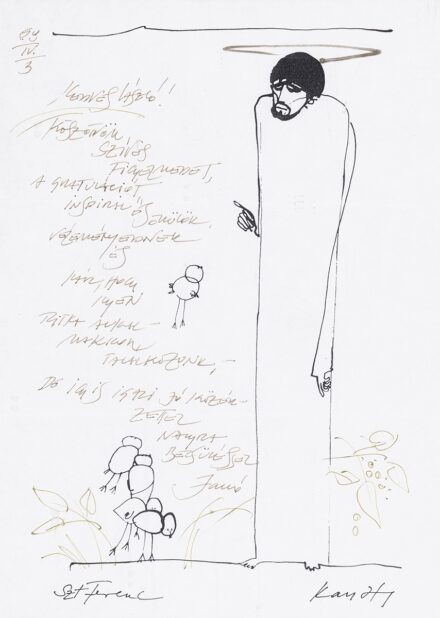 '94
IV.
3
"Kedves László!"
Köszönöm
szíves
figyelmedet,
a gratulációt
inspirál és
örülök
véleményednek
és
kár, hogy
ilyen
ritka alkal-
makkor
találkozunk,-
De így is igazi jó
zettel
nagyra
becsüléssel
Janó
Szt Ferenc